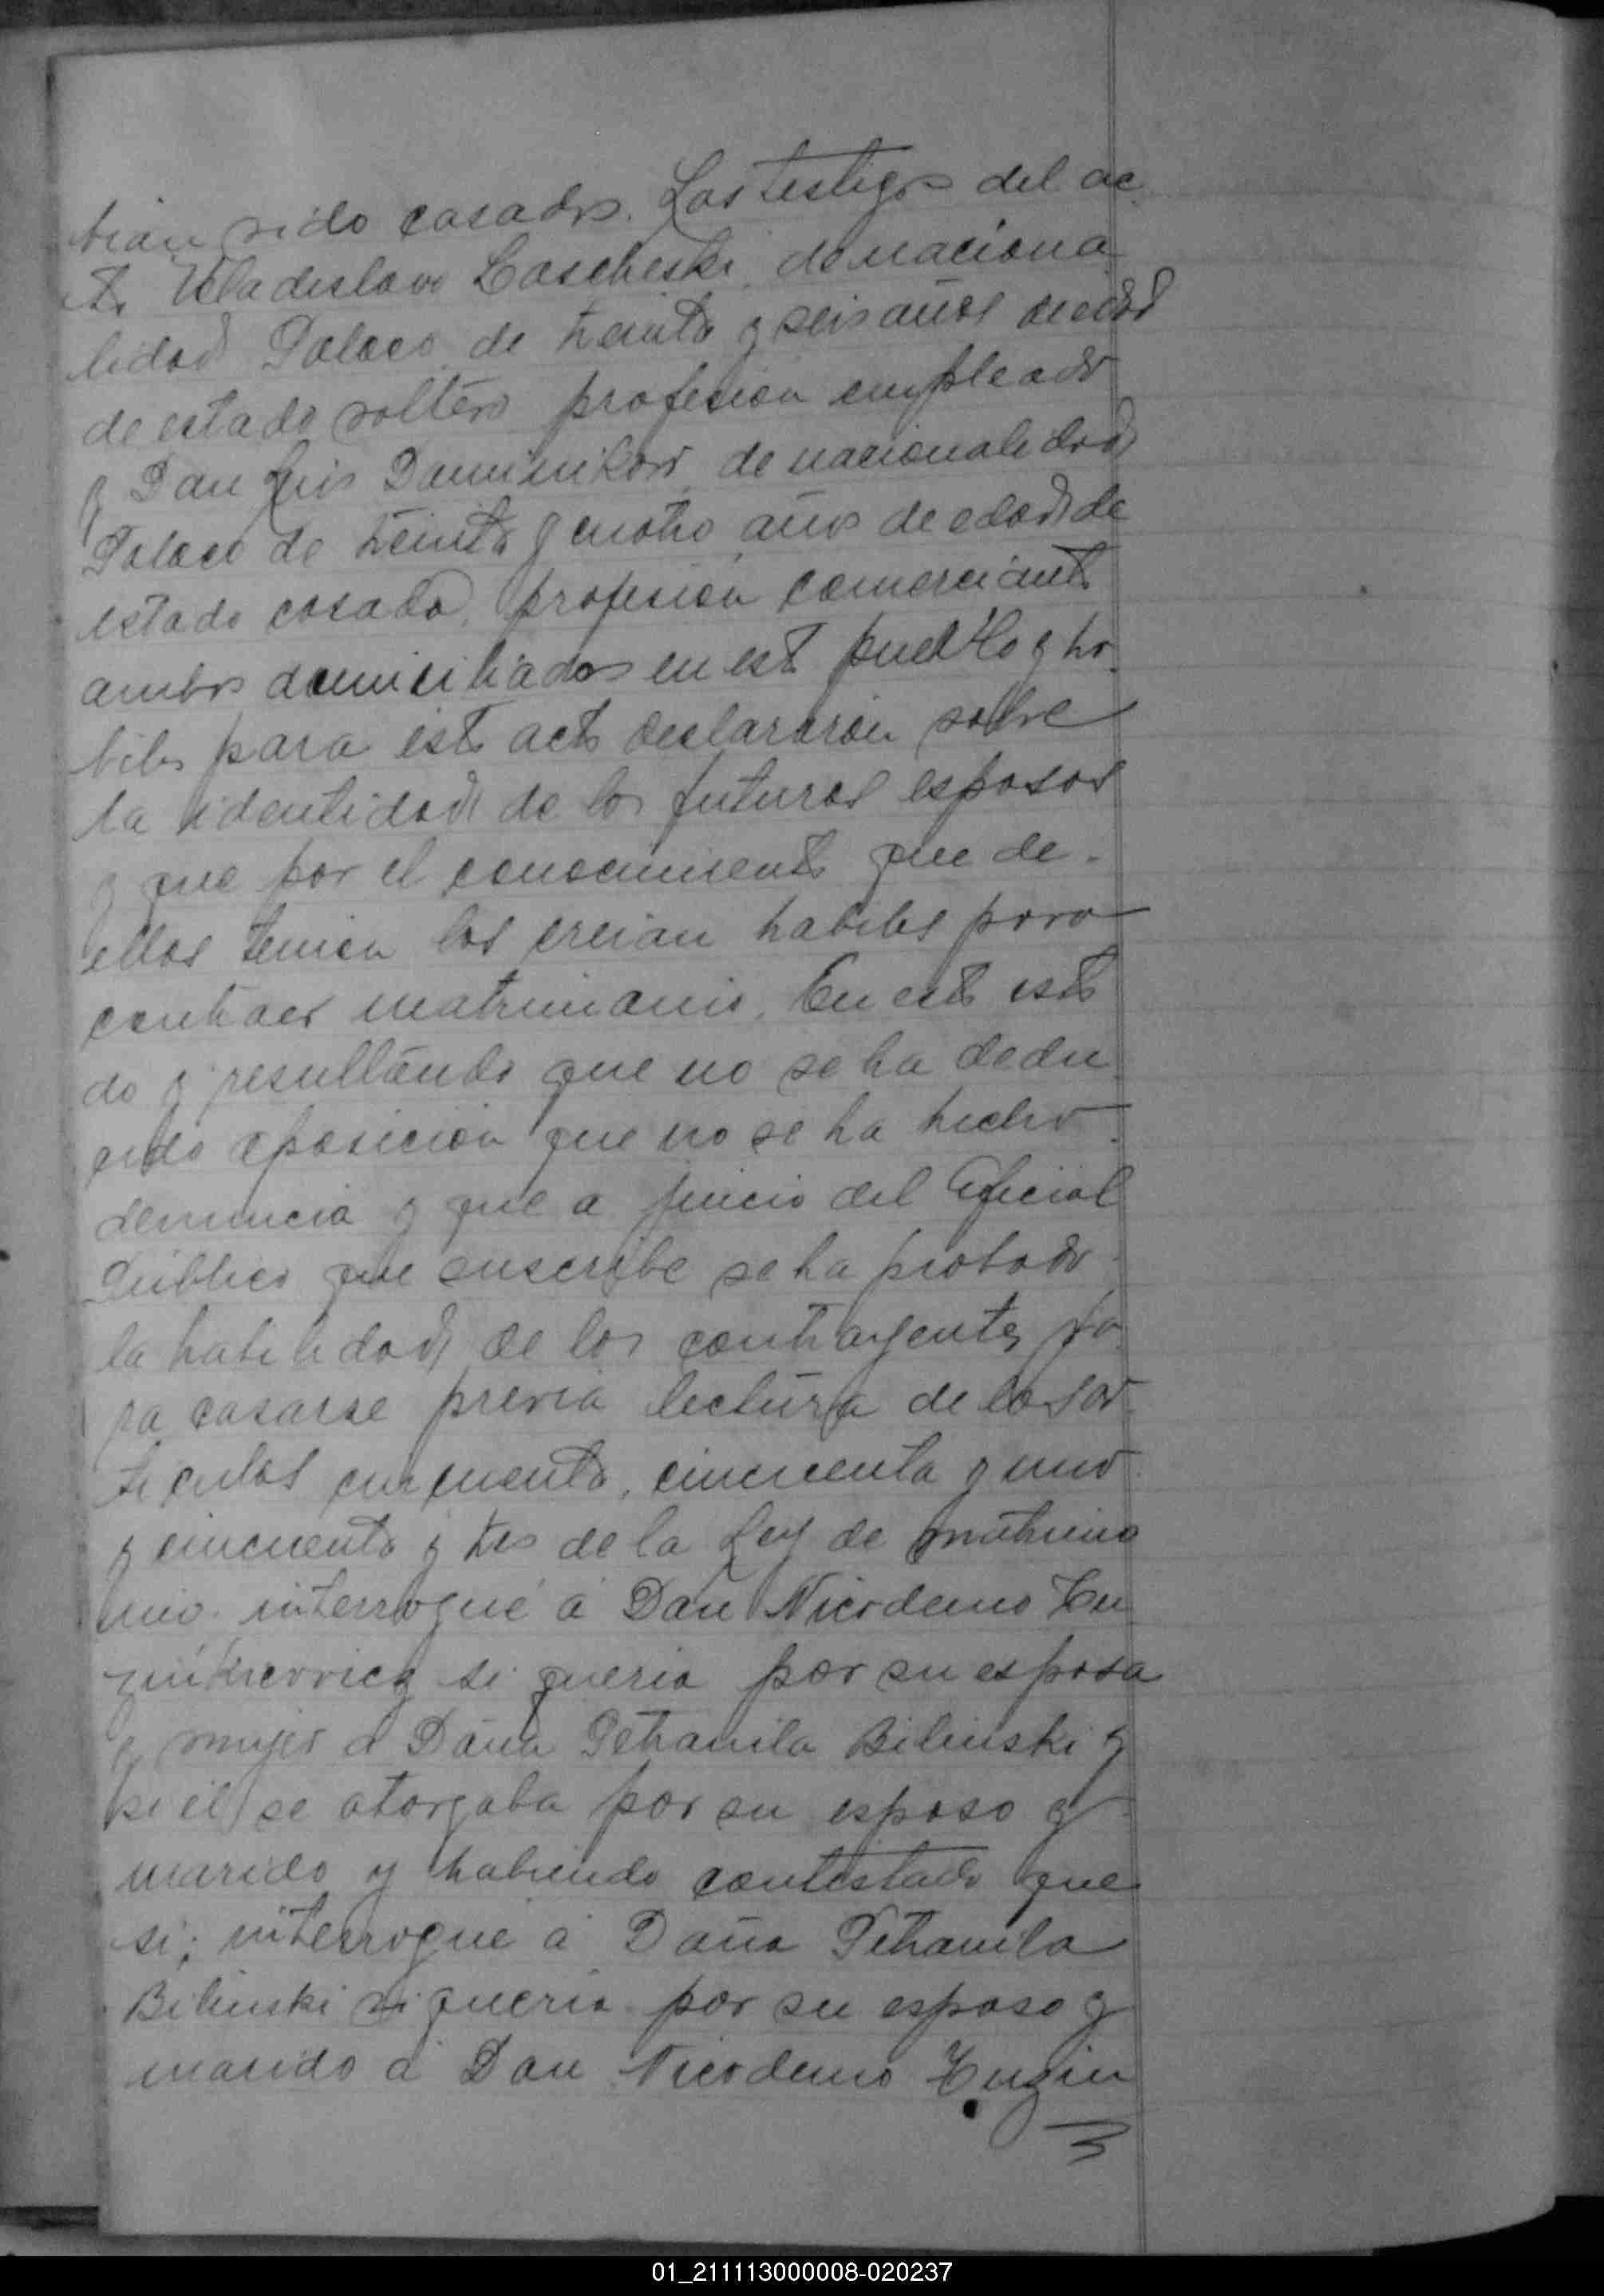 bian sido casados. Los testigos del ac
to Uladislavo Lascheski, de naciona
lidad Polaco de treinta y seis años de edad
de estado soltero profesion empleado
y Don Luis Dominikow de nacionalidad
Polaco de treinta y cuatro años de edad de
estado casado, profesion comerciante
ambos domiciliados en este pueblo y ha
biles para este acto declararon sobre
la identidad de los futuros esposos
y que por el conocimiento que de
ellos tenian los creian habiles para
contraer matrimonio. En este esta
do y resultando que no se ha dedu
cido oposicion que no se ha hecho
denuncia y que a juicio del Oficial
Público que suscribe se ha probado
la habilidad de los contrayentes pa
ra casarse previa lectura de los ar
ticulos cincuenta, cincuenta y uno
y cincuenta y tres de la Ley de matrimo
nio interrogué á Don Nicodemo
si queria por su esposa
y mujer á Doña Petronila Bilinski y
si él se otorgaba por su esposo y
marido y habiendo contestado que
si; interrogué á Doña Petronila
Bilinski si queria por su esposo y
marido á Don Nicodemo
01_211113000008-020237